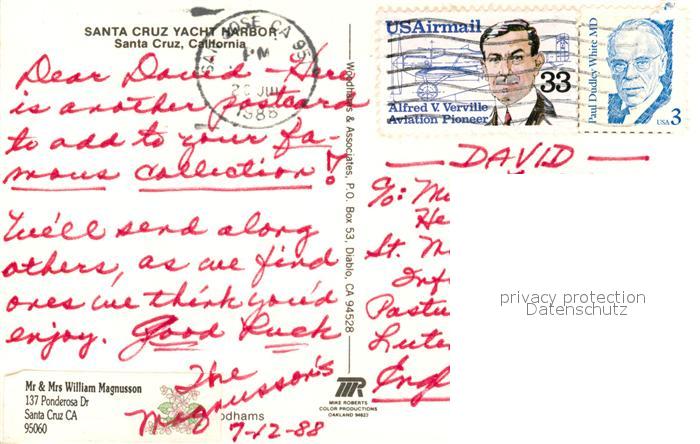 SANTA CRUZ YACHT HARBOR
Santa Cruz, California
SAN JOSE CA 95
PM
1988
Dear David - Here
is another postcard
to add to your fa-
mous collection!
We'll send along
others, as we find
ones we think you'd
enjoy. Good Luck
The
Magnusson's
7-12-88
Mr & Mrs William Magnusson
137 Ponderosa Dr
Santa Cruz CA
95060
odhams
Woodhams & Associates, P.O. Box 53, Diablo, CA 94528
MR
MIKE ROBERTS
COLOR PRODUCTIONS
OAKLAND 94623
USAirmail
33
Alfred V. Verville
Aviation Pioneer
Paul Dudley White MD
USA 3
— DAVID —
c/o: M
He
St. M
Inf
Pastu
Lute
Engl
privacy protection
Datenschutz